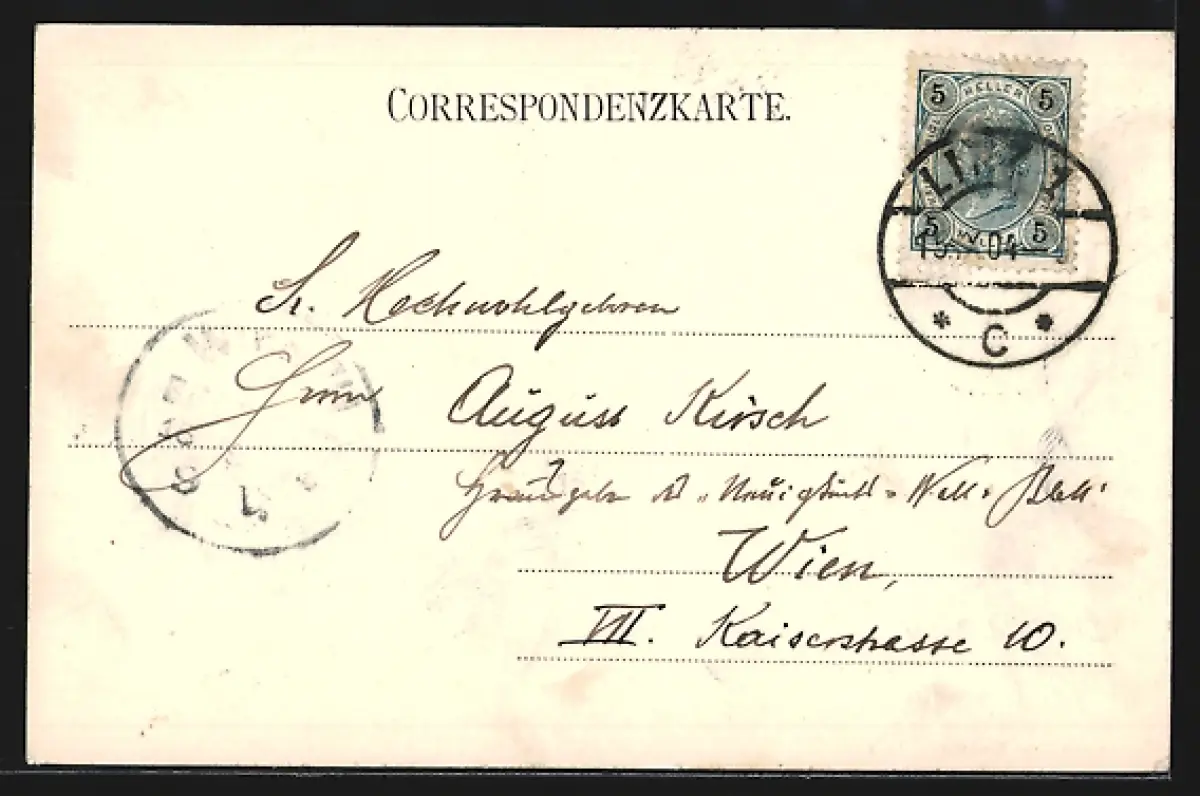 CORRESPONDENZKARTE.
5 HELLER 5
5 5
LINZ 1
04
* C *
Sr. Hochwohlgeboren
Herrn August Kirsch
Herausgeber d. "Neuigkeits" Welt-Blatt
Wien,
VII. Kaiserstrasse 10.